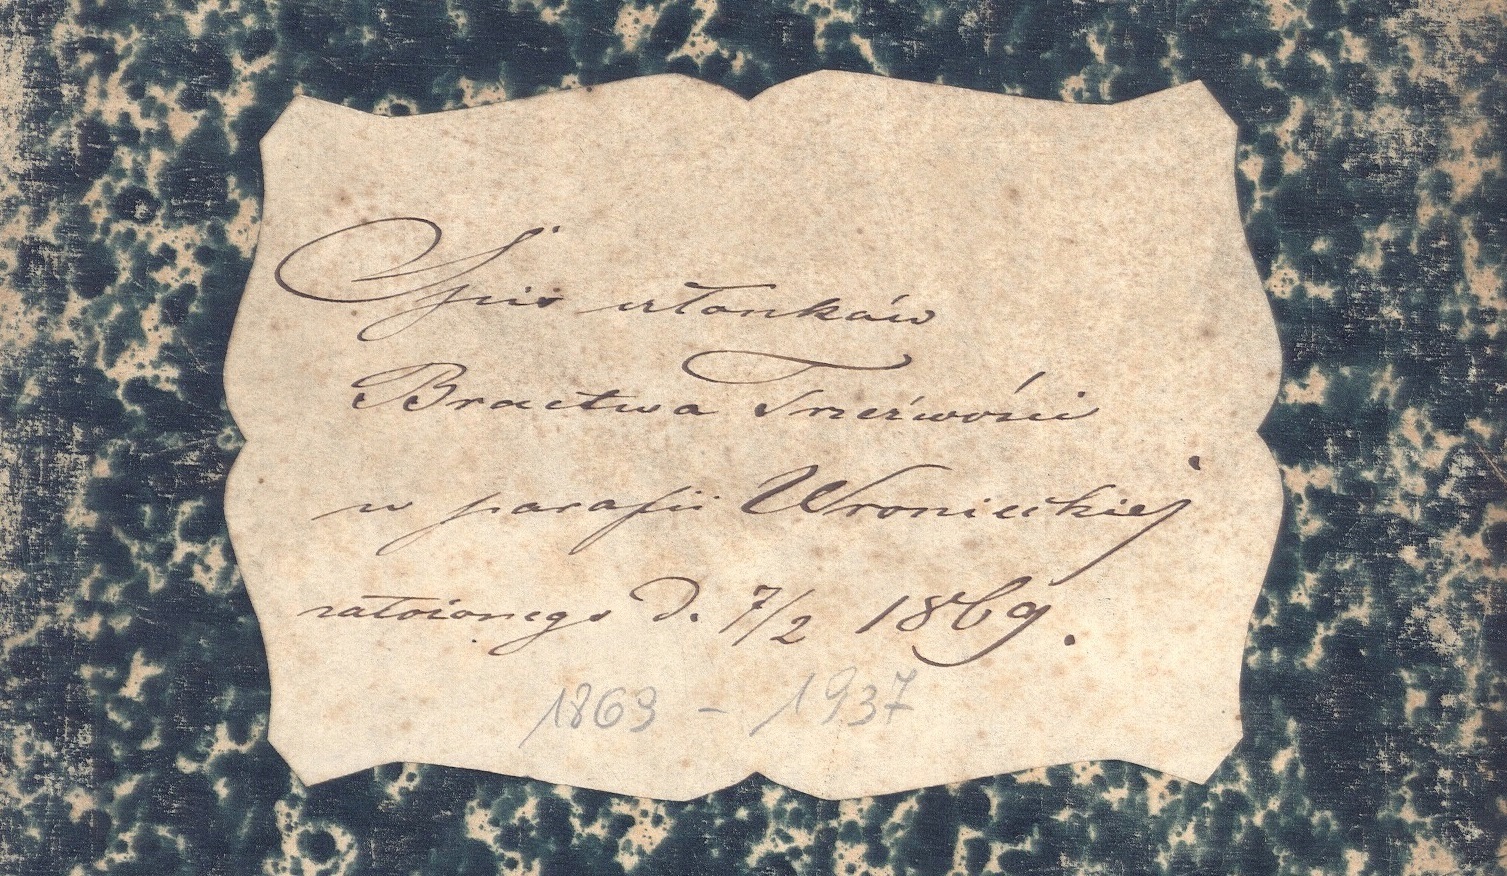 Spis członków
Bractwa Trzeźwości
w parafii Wronieckiej
założonego d. 7/2 1869.
1869 - 1937